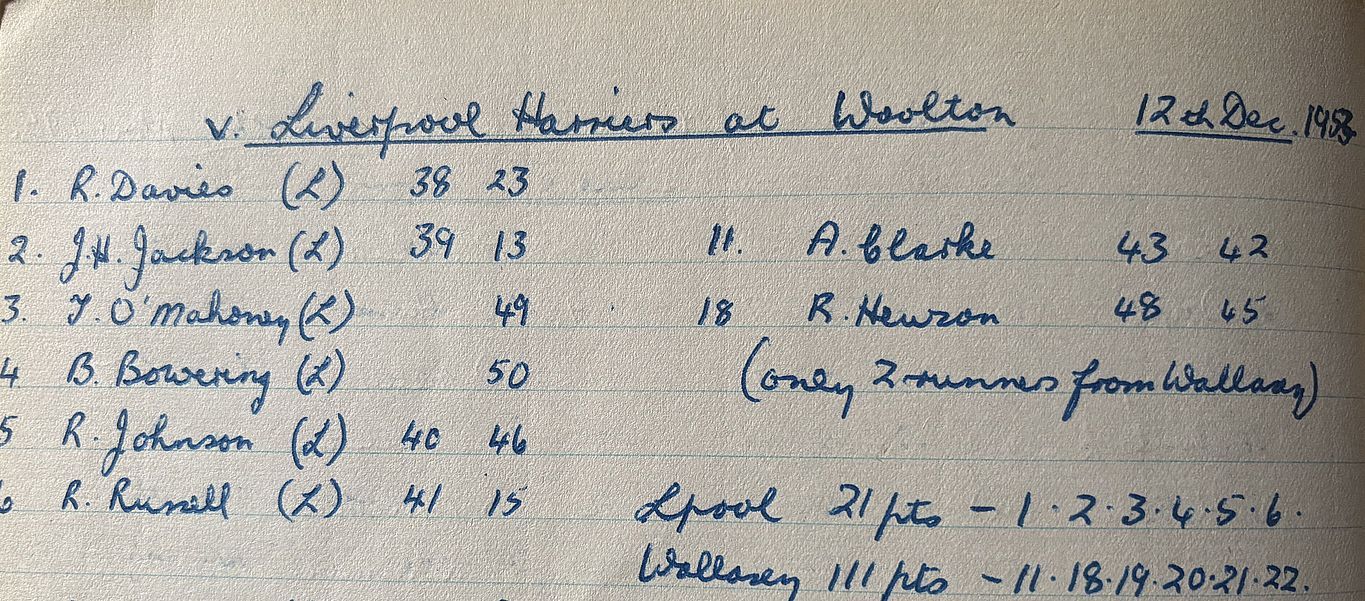 v. Liverpool Harriers at Woolton 12th Dec. 1953
1. R. Davies (L) 38 23
2. J.H. Jackson (L) 39 13 11. A. Clarke 43 42
3. T. O'Mahoney (L) 49 18 R. Hewson 48 45
4 B. Bowering (L) 50 (only 2 runners from Wallasey)
5 R. Johnson (L) 40 46
6 R. Russell (L) 41 15 Lpool 21 pts - 1.2.3.4.5.6.
Wallasey 111 pts - 11.18.19.20.21.22.